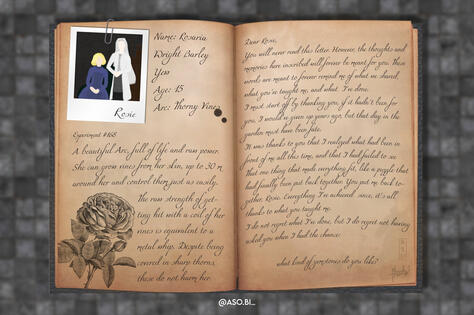 Rosie
Name: Rosaria
Wright Barley
Yew
Age: 15
Arc: Thorny Vines
Experiment #168
A beautiful Arc, full of life and raw power.
She can grow vines from her skin, up to 30 m
around her and control them just as easily.
The raw strength of get-
ting hit with a coil of her
vines is equivalent to a
metal whip. Despite being
covered in sharp thorns,
these do not harm her.
Dear Rosie,
You will never read this letter. However, the thoughts and
memories here inscribed will forever be meant for you. These
words are meant to forever remind me of what we shared,
what you've taught me, and what I've done.
I must start off by thanking you, if it hadn't been for
you, I would've given up years ago, but that day in the
garden must have been fate.
It was thanks to you that I realized what had been in
front of me all this time, and that I had failed to see
that one thing that made everything fit, like a puzzle that
had finally been put back together. You put me back to-
gether, Rosie. Everything I've achieved since, it's all
thanks to what you taught me.
I do not regret what I've done, but I do regret not having
asked you when I had the chance:
what kind of gemstones do you like?
@ASO.BI_